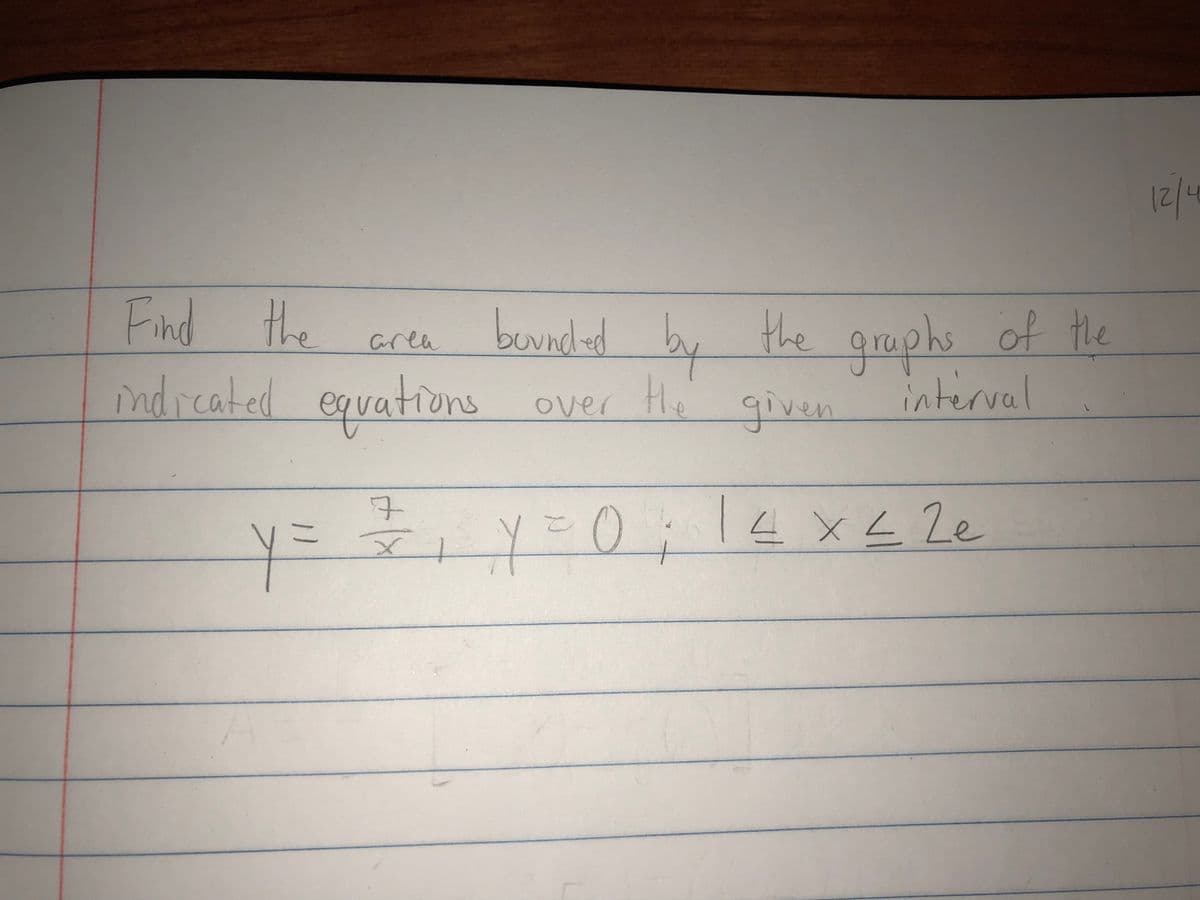 12/4
Find the area bounded by the graphs of the
indicated equations over the given interval.
y = 7/x, y = 0; 1 ≤ x ≤ 2e